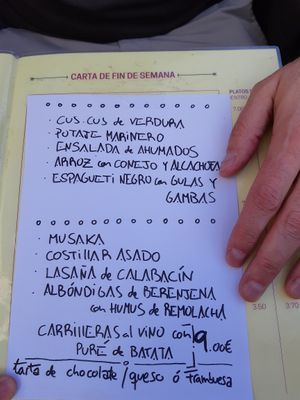 CARTA DE FIN DE SEMANA
PLATOS
· CUS-CUS DE VERDURA
· POTAJE MARINERO
· ENSALADA DE AHUMADOS
· ARROZ con CONEJO Y ALCACHOFA
· ESPAGUETI NEGRO con GULAS Y
GAMBAS
· MUSAKA
· COSTILLAR ASADO
· LASAÑA DE CALABACÍN
· ALBÓNDIGAS DE BERENJENA
con HUMUS DE REMOLACHA
CARRILLERAS al VINO con
PURÉ DE BATATA
9.00€
tarta de chocolate / queso ó Frambuesa
3.50
3.70